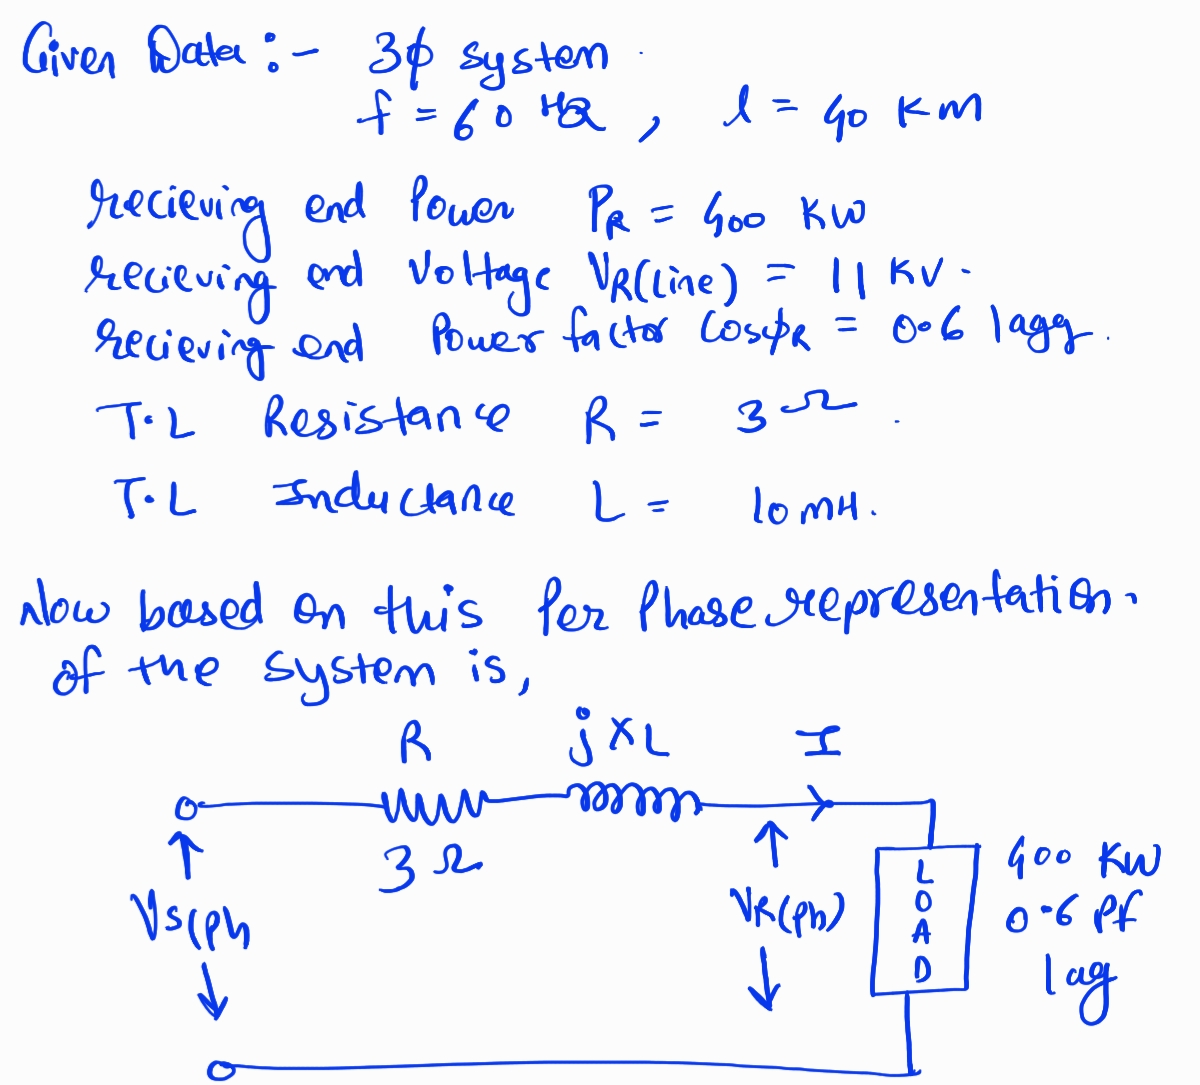 Given Data :- 3ϕ system.
f = 60 Hz, l = 40 Km
recieving end Power P_R = 400 KW
recieving end Voltage V_R(Line) = 11 KV.
recieving end Power factor Cosϕ_R = 0.6 lagg.
T.L Resistance R = 3 Ω.
T.L Inductance L = 10 mH.
Now based on this Per Phase representation.
of the system is,
R jXL I
3 Ω
Vs(ph
VR(ph)
LOAD
400 KW
0.6 Pf
lag